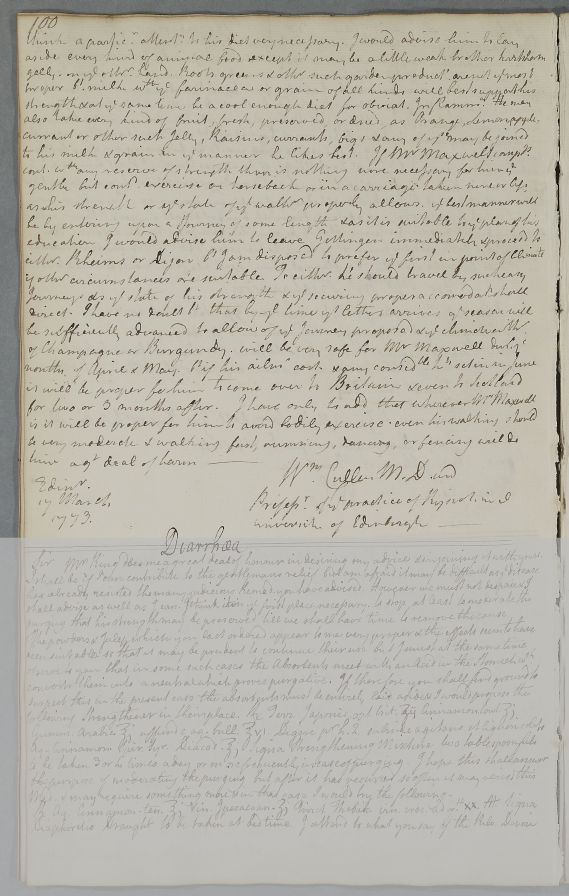 100
think a partic.r attent.n to his diet very necessary. I would advise him to lay
aside every kind of animal food except it may be a little weak broth or hartshorn
Jelly. Roots greens & other such garden product
proper farinaceae or grain of all kinds will best support his
strength & at ye same time be a cool enough diet for obviat. Inflamm.n He may
also take every kind of fruit, fresh, preserved, or dried, as Orange, Lemon, apple,
currant or other such Jelly, Raisins, currants, figs & any of ym may be joined
to his milk & grain in ye manner he likes best. If Mr Maxwell's compts
cont. wt any reserve of strength there is nothing more necessary for him yn
gentle but const exercise on horseback or in a carriage taken more or less
as his strength or ye state of ye weathr properly allows. ye best manner will
be by entering upon a Journey of some length & as it is suitable to ye plan of his
education I would advise him to leave Gottingen immediately & proceed to
either Rheims or Dijon I am disposed to prefer ye first in point of Climate
if other circumstances are suitable. To either he should travel by such easy
Journeys as ye state of his strength & ye securing proper accomodatn shall
direct. I have no doubt that by ye time ys letter arrives ye season will
be sufficiently advanced to allow of ye Journey proposed & ye climate
of Champagne or Burgundy will be very safe for Mr Maxwell during ye
months of April & May. if his ailms cont. & any set in in June
it will be proper for him to come over to Britain & even to Scotland
for two or 3 months after. I have only to add that wherever Mr Maxwell
is it will be proper for him to avoid bodily exercise. even his walking should
be very moderate & walking fast, running, dancing, or fencing will do
him a gt deal of harm
Edinr.
17 March
1773.
Wm Cullen M.D. and
Profesr. of ye practice of Physic in ye
university of Edinburgh
Diarrhæa
Sir Mr King does me a great deal of honour in desiring my advice
I shall be if I can contribute to the gentlemans relief but am afraid it may be difficult as ye disease
has already resisted the many judicious remedies you have advised. However we must not despair & I
shall advise as well as I can. I think then ye first place necessary to stop, at least to moderate the
purging that his strength may be preserved till we shall have time to remove the cause
The powders & Julep which you last ordered appear to me very proper & the effects seem to have
been suitable so that it may be prudent to continue their use but I must at the same time
observe to you that in some such cases the Absorbents meet with an Acid in the Stomach wch
converts them into a neutral which proves purgative. If therefore you shall find ground to
suspect this in the present case the absorbents must be entirely laid aside & I would propose the
following Strengthener in their place. Rx Terr. Japonic.
Gummi Arabic
Aq. Cinnamom. Signa Strengthening Mixture two table spoonfuls
to be taken 3 or 4 times a day or more frequently in case of purging. I hope this shall answer
the purpose of moderating the purging but after it has recurred so often it may resist this
also & may require something more in that case I would try the following
Rx Aq. Cinnamom. ten. Vin. Ipecacuan. Tinct. Thebaic. Signa
Diaphoretic Draught to be taken at bedtime. I attend to what you say of the